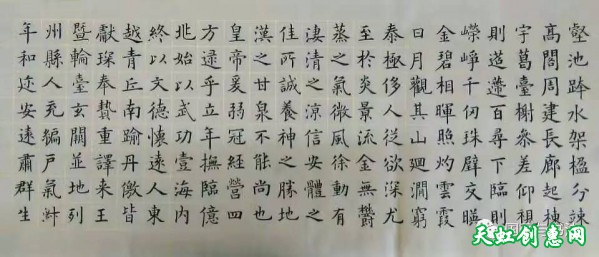 壑池跨水架楹分竦
高閣周建長廊起棟
宇葛臺榭參差仰視
則迢遰百尋下臨則
嶸崢千仞珠璧交暎
金碧相暉照灼雲霞
日月觀其山廻澗窮
泰極侈人從欲深尤
至於炎景流金無鬱
蒸之氣微風徐動有
淒清之涼信安體之
佳所誠養神之勝地
漢之甘泉不能尚也
皇帝爰弱冠經營四
方逮乎立年撫臨億
兆始以武功壹海內
終以文德懷遠人東
越青丘南踰丹儌皆
獻琛奉贄重譯来王
暨輪臺玄關並地列
州縣人充編戶氣淑
年和迩安遠肅群生
天虹创惠网